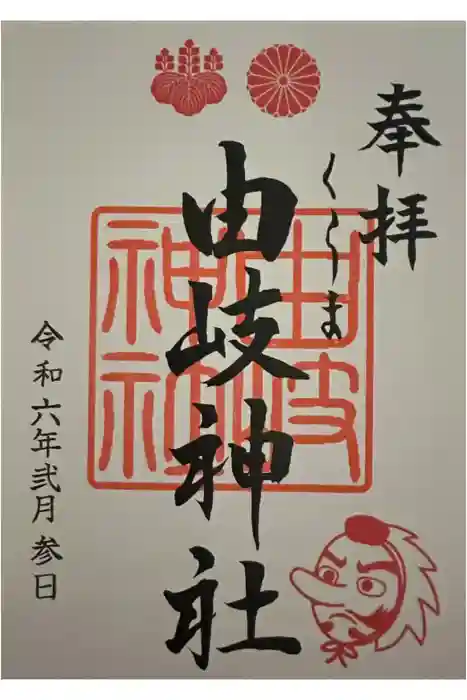 奉拝
くらま
由岐神社
由岐神社
令和六年弐月参日